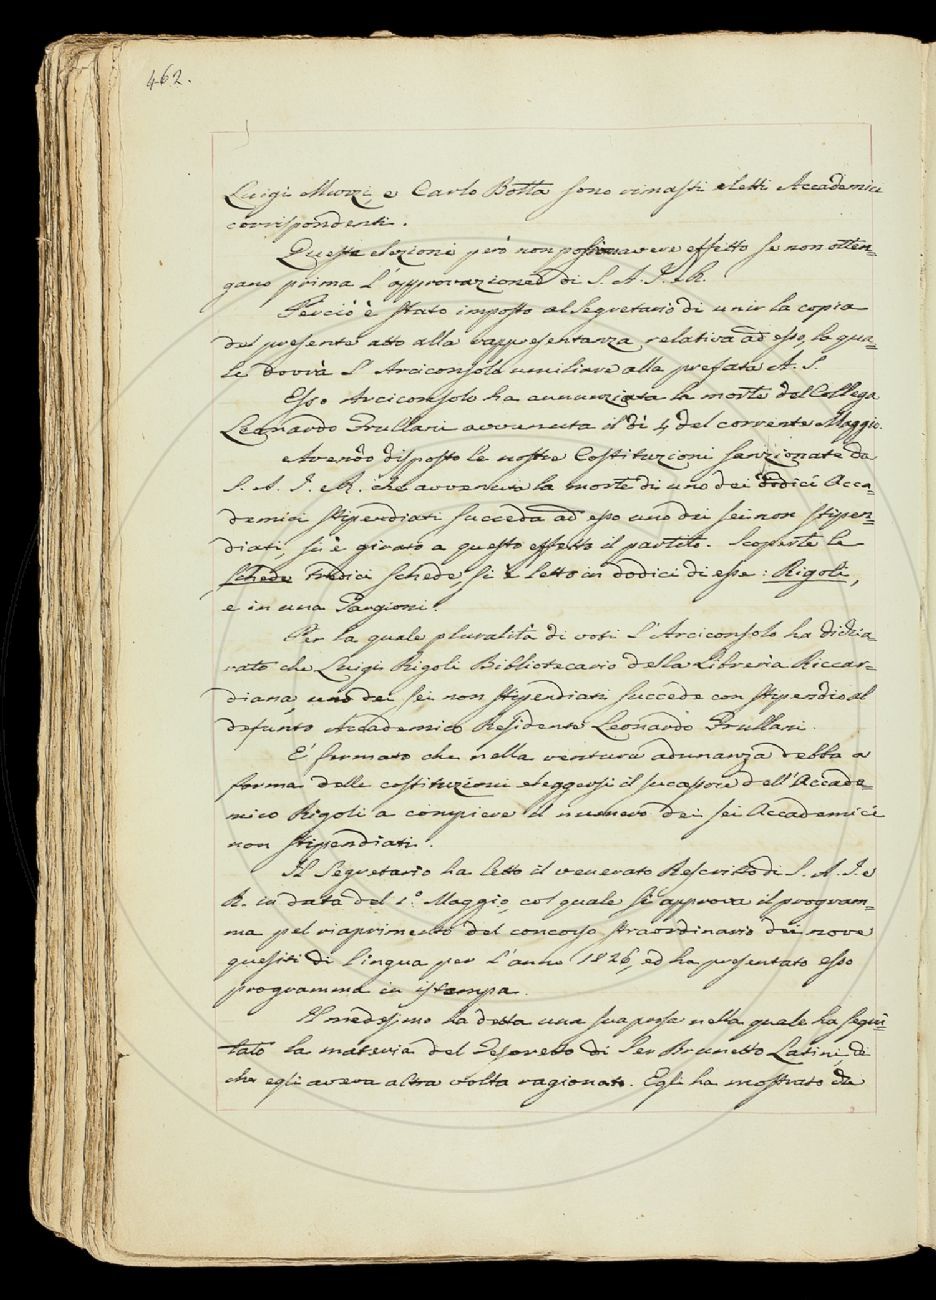 462.
Luigi Muzzi, e Carlo Botta sono rimasti eletti Accademici
corrispondenti.
Queste elezioni però non possono avere effetto se non otten=
gano prima l'approvazione di S. A. I. e R.
Perciò è stato imposto al Segretario di unir la copia
del presente atto alla rappresentanza relativa ad esso, la qua=
le dovrà l'Arciconsolo umiliare alla prefata A. S.
Esso Arciconsolo ha annunziata la morte del Collega
Leonardo Frullani avvenuta il dì 4 del corrente Maggio.
Avendo disposto le nostre Costituzioni sanzionate da
S. A. I. e R. che avvenuta la morte di uno dei dodici Acca=
demici stipendiati succeda ad esso uno dei sei non stipen=
diati, si è girato a questo effetto il partito. Scoperte le
schede tredici schede, si è letto in dodici di esse: Rigoli,
e in una Targioni.
Per la quale pluralità di voti l'Arciconsolo ha dichia
rato che Luigi Rigoli Bibliotecario della Libreria Riccar=
diana, uno dei sei non stipendiati succede con stipendio al
defunto Accademico Residente Leonardo Frullani.
È fermato che nella ventura adunanza debba a
forma delle costituzioni eleggersi il successore dell'Accade=
mico Rigoli a compiere il numero dei sei Accademici
non stipendiati.
Il Segretario ha letto il venerato Rescritto di S. A. I. e
R. in data del 1.° Maggio, col quale si approva il program=
ma pel riaprimento del concorso straordinario dei nove
quesiti di lingua per l'anno 1826, ed ha presentato esso
programma in istampa.
Il medesimo ha detta una sua prosa nella quale ha segui=
tato la materia del Tesoretto di Ser Brunetto Latini, di
che egli aveva altra volta ragionato. Egli ha mostrato da